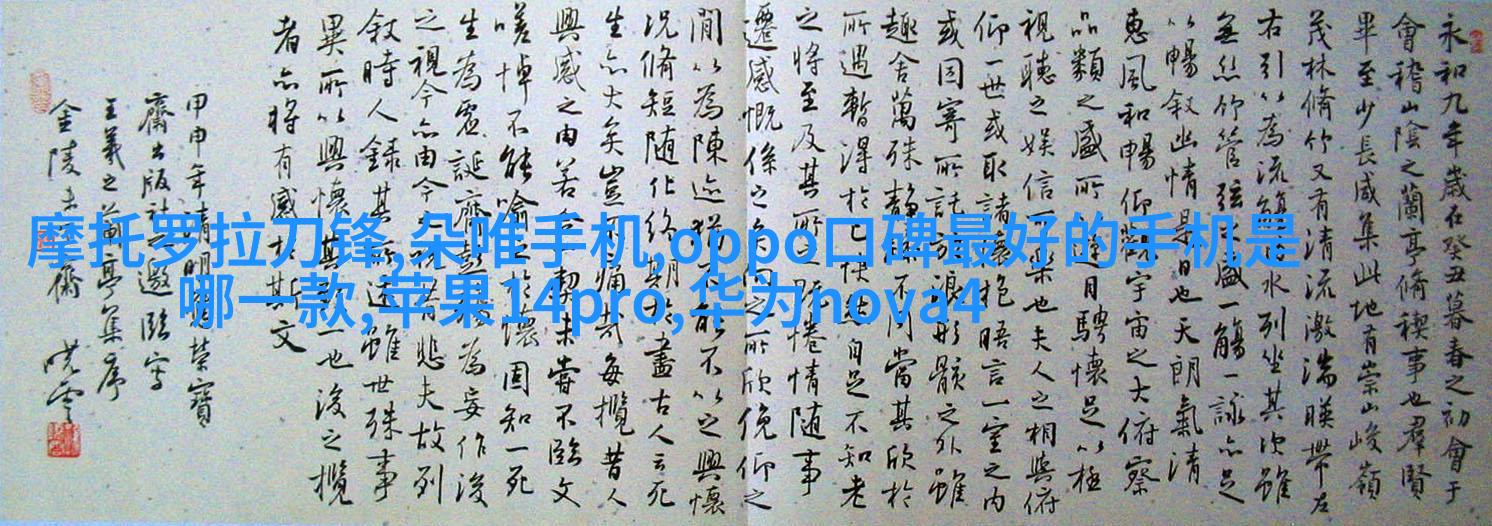 永和九年歲在癸丑暮春之初會于
會稽山陰之蘭亭脩稧事也群賢
畢至少長咸集此地有崇山峻嶺
茂林脩竹又有清流激湍暎帶左
右引以為流觴曲水列坐其次雖
無絲竹管弦之盛一觴一詠亦足
以暢敘幽情是日也天朗氣清
惠風和暢仰觀宇宙之大俯察
品類之盛所以遊目騁懷足以極
視聽之娛信可樂也夫人之相與俯
仰一世或取諸懷抱晤言一室之內
或因寄所託放浪形骸之外雖
趣舍萬殊靜躁不同當其欣於
所遇暫得於己快然自足不知老
之將至及其所之既惓情隨事
遷感慨係之矣向之所欣俛仰之
間以為陳迹猶不能不以之興懷
況脩短隨化終期於盡古人云死
生亦大矣豈不痛哉每攬昔人
興感之由若合一契未嘗不臨文
嗟悼不能喻之於懷固知一死
生為虛誕齊彭殤為妄作後
之視今亦由今之視昔悲夫故列
敘時人錄其所述雖世殊事
異所以興懷其致一也後之攬
者亦將有感於斯文
甲申年清明榮寶
齋出版社之邀臨寫
王羲之蘭亭集序
金陵齋曉雲
摩托罗拉刀锋,朵唯手机,oppo口碑最好的手机是
哪一款,苹果14pro,华为nova4